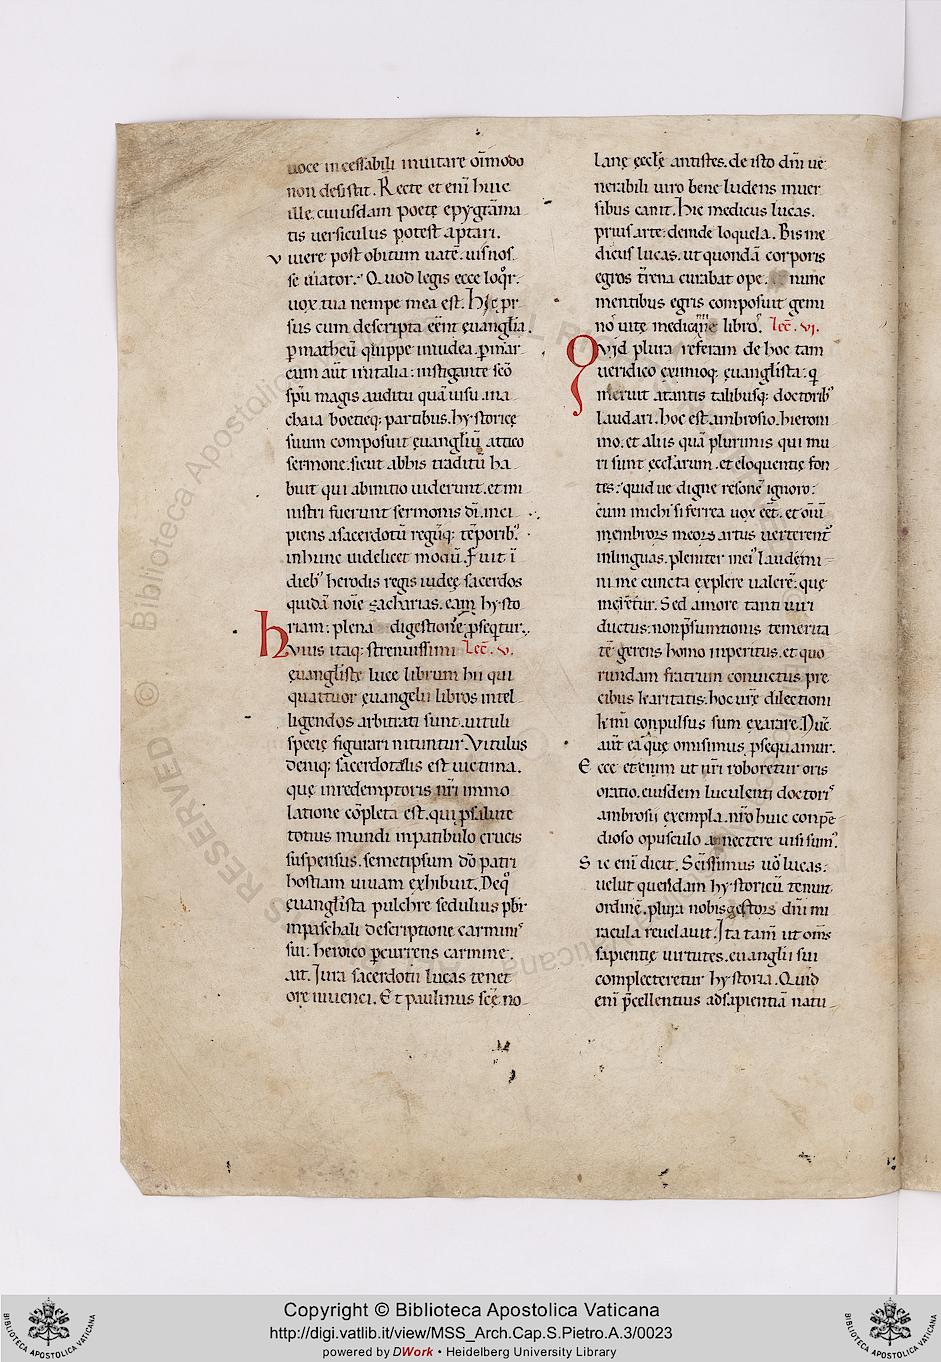 uoce incessabili inuitare om̄modo
non desistit. Recte et eni huic
ille. cuiusdam poetę epygrāma
tis uersiculus potest aptari.
Viuere post obitum uatē. uis nos
se uiator. Quod legis ecce loq̊r.
uox tua nempe mea est. Hic pr̄
sus cum descripta eēnt ęuanglia.
p̱ matheū quippe in iudea. p̱ mar
cum aūt in italia: instigante sc̄o
sp̄u magis auditu quā uisu. in a
chaia boetieq; partibus. hystoricę
suum composuit ęuangliū attico
sermone. sicut ab his traditū ha
buit qui ab initio uiderunt. et mi
nistri fuerunt sermonis dī. inci
piens a sacerdotū regūq; tēporib;.
in hunc uidelicet modū. Fuit ī
dieb; herodis regis iudeę sacerdos
quidā noīe zacharias. eam hysto
riam: plena digestione p̱seq̄tur.
Huius itaq; strenuissimi Lec̄. v.
ęuanglistę luce librum hii qui
quattuor ęuangelii libros intel
ligendos arbitrati sunt. uituli
specię figurari nituntur. Vitulus
deniq; sacerdotalis est uictima.
quę in redemptoris nr̄i immo
latione cōpleta est. qui p̱ salute
totius mundi in patibulo crucis
suspensus. semetipsum dō patri
hostiam uiuam exhibuit. Deq̊
ęuanglista pulchre sedulius pbr̄
in paschali descriptione carminis
sui: heroico p̱currens carmine.
ait. Iura sacerdotii lucas tenet
ore iuuenci. Et paulinus scę no
lanę ęcclę antistes. de isto dn̄i ue
nerabili uiro bene ludens in uer
sibus canit. Hic medicus lucas.
prius arte: deinde loquela. Bis me
dicus lucas. ut quondā corporis
egros t̄rena curabat ope. et nunc
mentibus egris composuit gemi
no uitę medicine libro. Lec̄. vi.
Quid plura referam de hoc tam
ueridico eximioq; ęuanglista: q
meruit a tantis talibusq; doctorib;
laudari. hoc est ambrosio. hieroni
mo. et aliis quā plurimis qui mu
ri sunt ęcclarum. et eloquentię fon
tis: quid ue digne resonē ignoro:
cum michi si ferrea uox eēt. et oīu
membrorum meorum artus uerterent
in linguas. pleniter mei laudem i
ni me cuncta explere ualerē: quę
meretur. Sed amore tanti uiri
ductus: non p̄sumtionis temerita
tē gerens homo inperitus. et quo
rundam fratrum conuictus pre
cibus karitatis: hoc urę dilectioni
km̄i conpulsus sum exarare. Nūc
aūt ea quę omisimus p̱sequamur.
Ecce etenim ut nr̄i roboretur oris
oratio. eiusdem luculenti doctoris
ambrosii exempla. nr̄o huic conpē
dioso opusculo annectere uisi sum;.
Sic eni dicit. Sc̄issimus uo lucas:
uelut quendam hystoricū tenuit
ordinē. plura nobis gestorum dn̄i mi
racula reuelauit. Ita tam̄ ut om̄s
sapientię uirtutes. euanglii sui
complecteretur hystoria. Quid
eni p̄cellentius ad sapientiā natu
Copyright © Biblioteca Apostolica Vaticana
http://digi.vatlib.it/view/MSS_Arch.Cap.S.Pietro.A.3/0023
powered by DWork • Heidelberg University Library